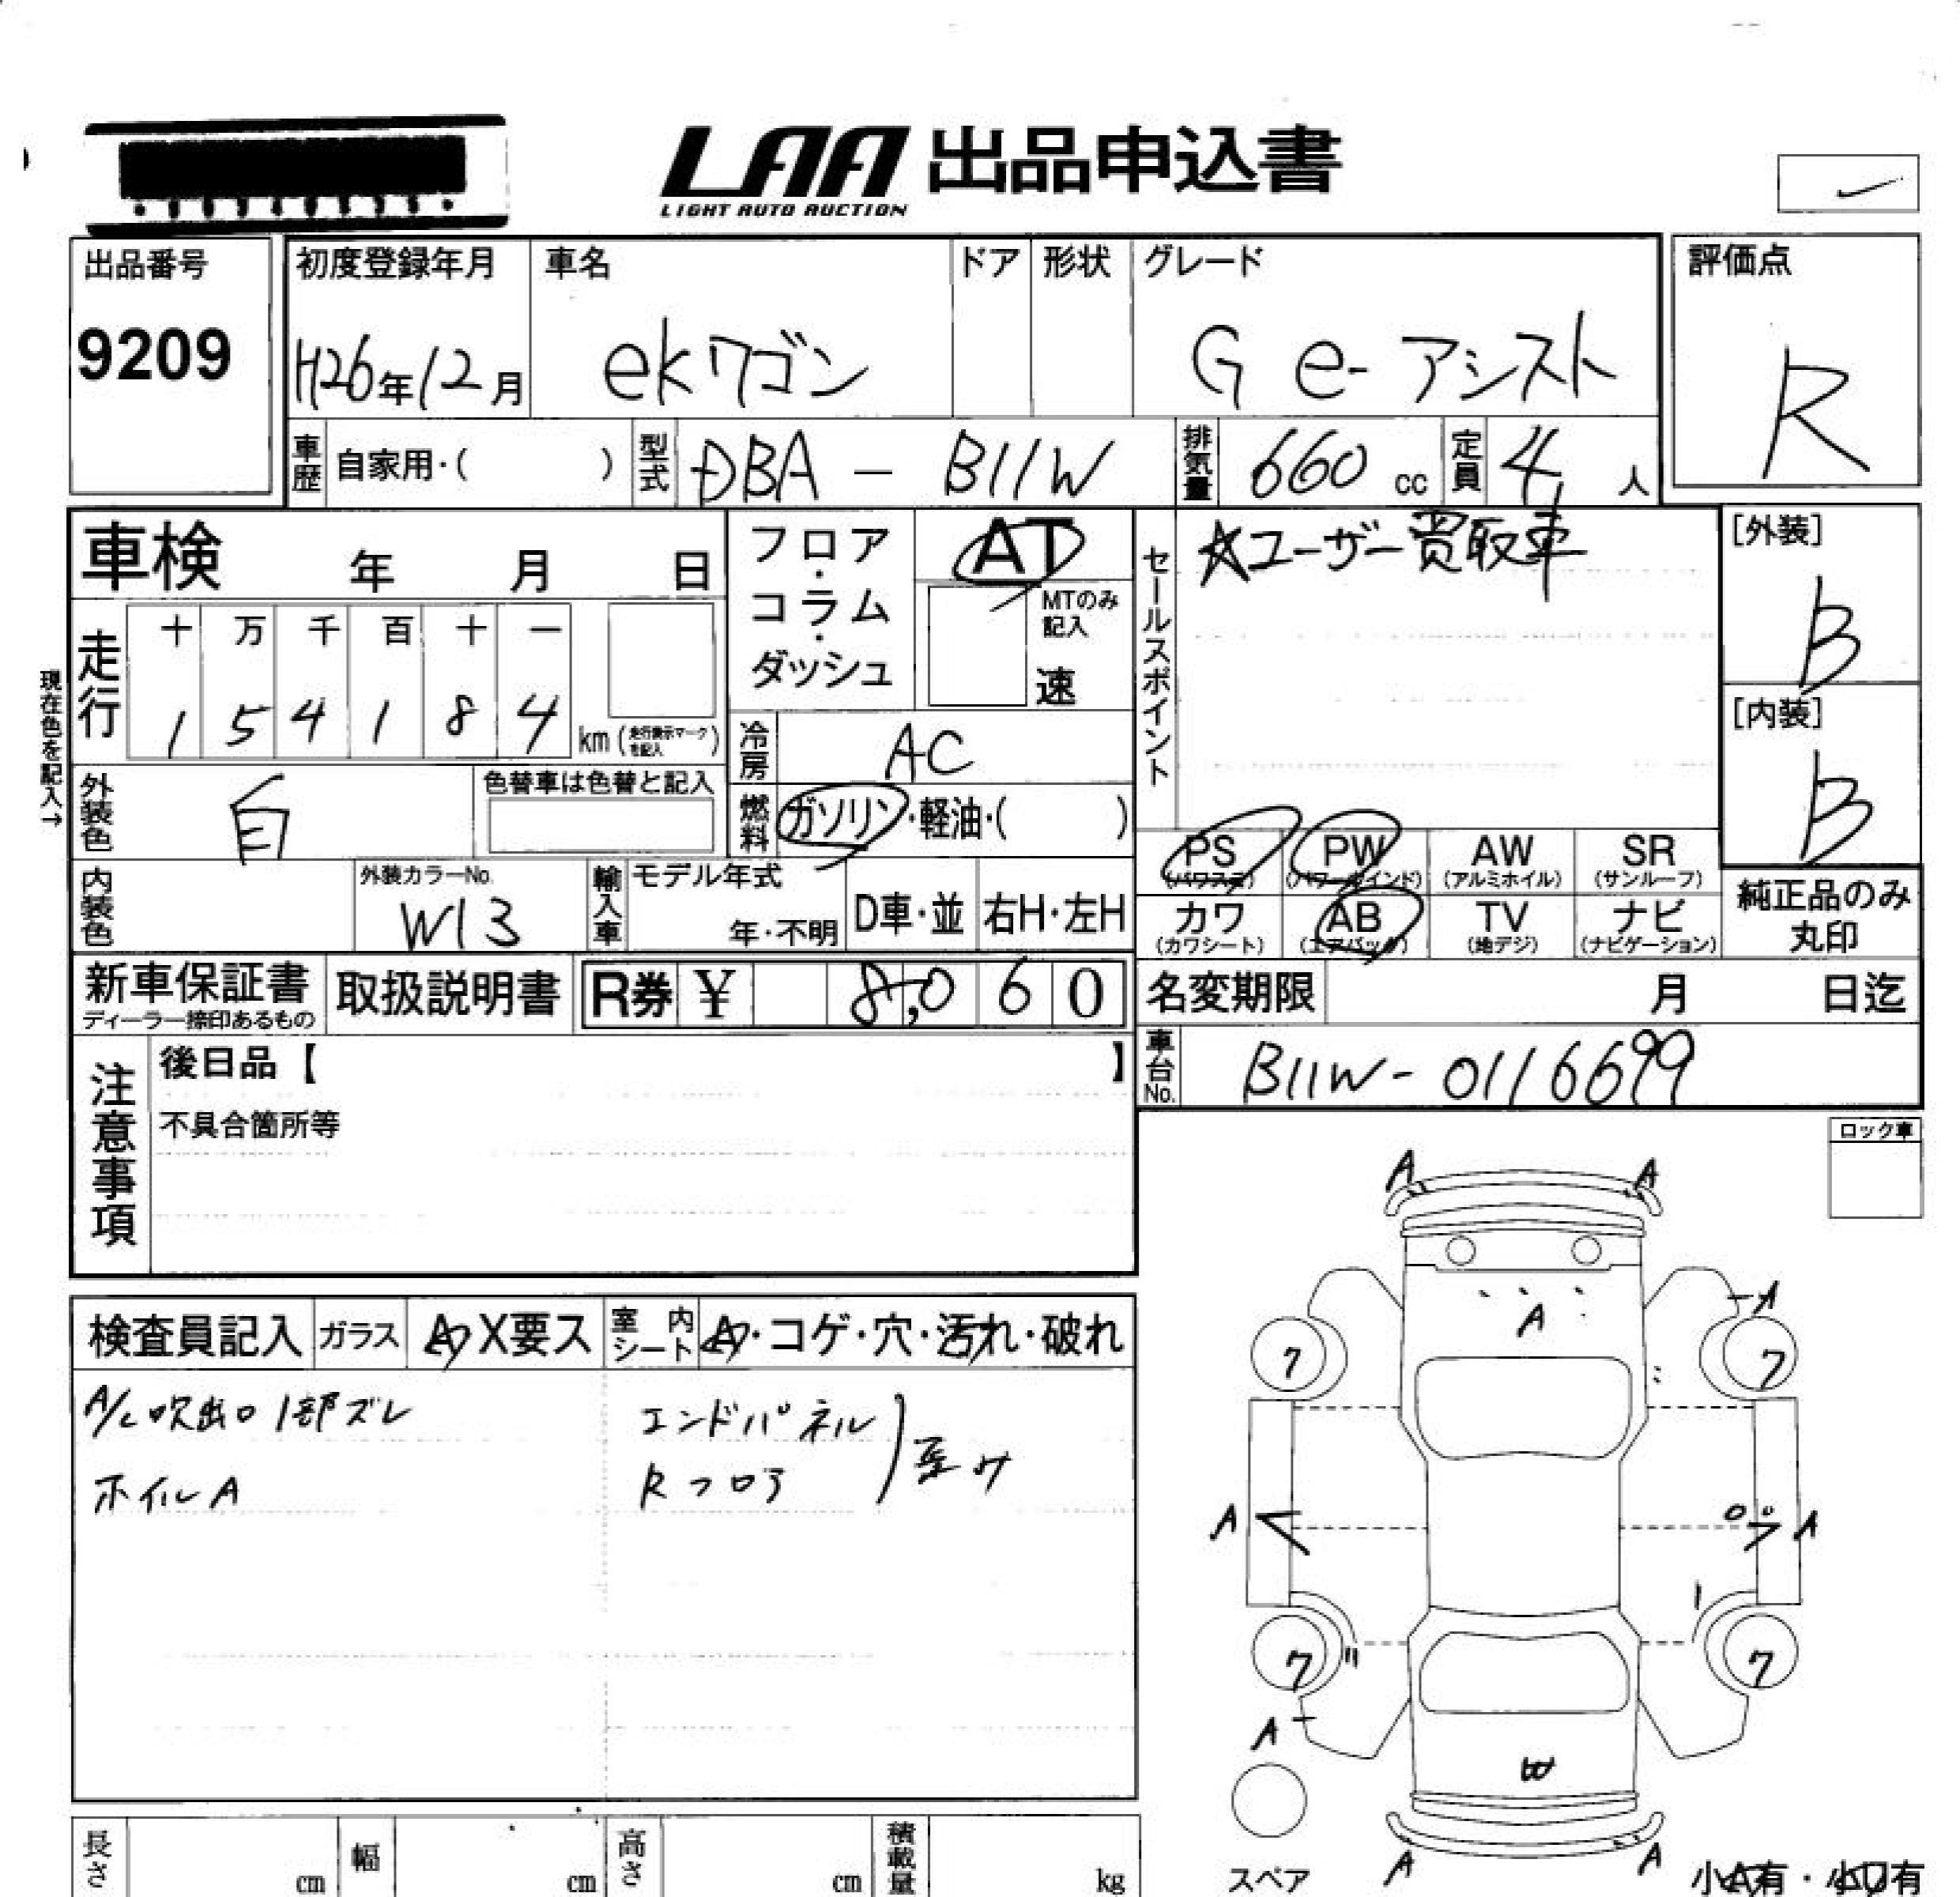 LAA 出品申込書
LIGHT AUTO AUCTION
出品番号
9209
初度登録年月
H26年12月
車名
ekワゴン
ドア
形状
グレード
G e-アシスト
評価点
R
車歴
自家用・( )
型式
DBA - B11W
排気量
660 cc
定員
4人
車検 年 月 日
フロア・コラム・ダッシュ
AT
MTのみ記入
速
セールスポイント
☆ユーザー買取車
[外装]
B
[内装]
B
現在色を記入→
走行
十 万 千 百 十 一
1 5 4 1 8 4 km (走行表示マークを記入)
冷房
AC
外装色
白
色替車は色替と記入
燃料
ガソリン・軽油・( )
PS
(パワステ)
PW
(パワーウインド)
AW
(アルミホイル)
SR
(サンルーフ)
内装色
外装カラーNo.
W13
輸入車
モデル年式
年・不明
D車・並
右H・左H
カワ
(カワシート)
AB
(エアバッグ)
TV
(地デジ)
ナビ
(ナビゲーション)
純正品のみ
丸印
新車保証書
ディーラー捺印あるもの
取扱説明書
R券 ¥ 8,060
名変期限 月 日迄
車台No.
B11W-0116699
注意事項
後日品【 】
不具合箇所等
ロック車
検査員記入
ガラス
A X要ス
室内シート
A・コゲ・穴・汚れ・破れ
A/C吹出口1部ズレ
ホイルA
エンドパネル
Rフロア
歪み
A A
A
A
7 7
A A
7 7
A
W
A A
スペア
小A有・小U有
長さ cm
幅 cm
高さ cm
積載量 kg